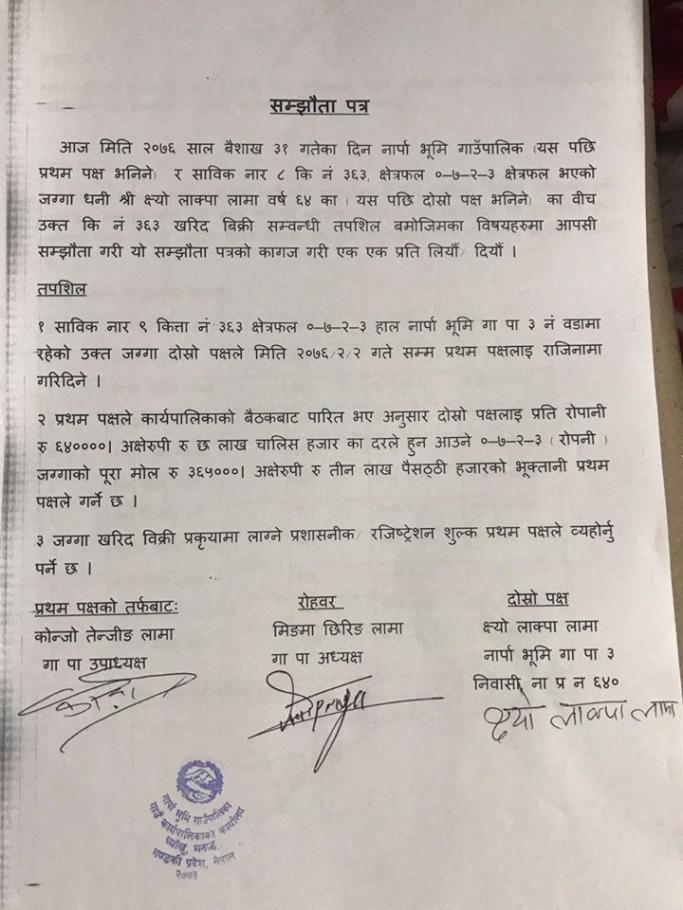 सम्झौता पत्र
आज मिति २०७६ साल बैशाख ३१ गतेका दिन नार्पा भूमि गाउँपालिक (यस पछि
प्रथम पक्ष भनिने) र साविक नार ८ कि नं ३६३, क्षेत्रफल ०–७–२–३ क्षेत्रफल भएको
जग्गा धनी श्री क्ष्यो लाक्पा लामा वर्ष ६४ का ( यस पछि दोस्रो पक्ष भनिने) का वीच
उक्त कि नं ३६३ खरिद बिक्री सम्वन्धी तपशिल बमोजिमका विषयहरुमा आपसी
सम्झौता गरी यो सम्झौता पत्रको कागज गरी एक एक प्रति लियौं/ दियौं ।
तपशिल
१ साविक नार ९ कित्ता नं ३६३ क्षेत्रफल ०–७–२–३ हाल नार्पा भूमि गा पा ३ नं वडामा
रहेको उक्त जग्गा दोस्रो पक्षले मिति २०७६/२/२ गते सम्म प्रथम पक्षलाइ राजिनामा
गरिदिने ।
२ प्रथम पक्षले कार्यपालिकाको बैठकबाट पारित भए अनुसार दोस्रो पक्षलाइ प्रति रोपानी
रु ६४००००| अक्षेरुपी रु छ लाख चालिस हजार का दरले हुन आउने ०–७–२–३ ( रोपनी )
जग्गाको पूरा मोल रु ३६५०००| अक्षेरुपी रु तीन लाख पैसठ्ठी हजारको भूक्तानी प्रथम
पक्षले गर्ने छ ।
३ जग्गा खरिद विक्री प्रकृयामा लाग्ने प्रशासनीक/ रजिष्ट्रेशन शुल्क प्रथम पक्षले व्यहोर्नु
पर्ने छ ।
प्रथम पक्षको तर्फबाटः
कोन्जो तेन्जीङ लामा
गा पा उपाध्यक्ष
रोहवर
मिङमा छिरिङ लामा
गा पा अध्यक्ष
दोस्रो पक्ष
क्ष्यो लाक्पा लामा
नार्पा भूमि गा पा ३
निवासी ना प्र न ६४०
क्ष्यो लाक्पा लामा
नार्पा भूमि गाउँपालिका
गाउँ कार्यपालिकाको कार्यालय
मनाङ
गण्डकी प्रदेश, नेपाल
२०७३